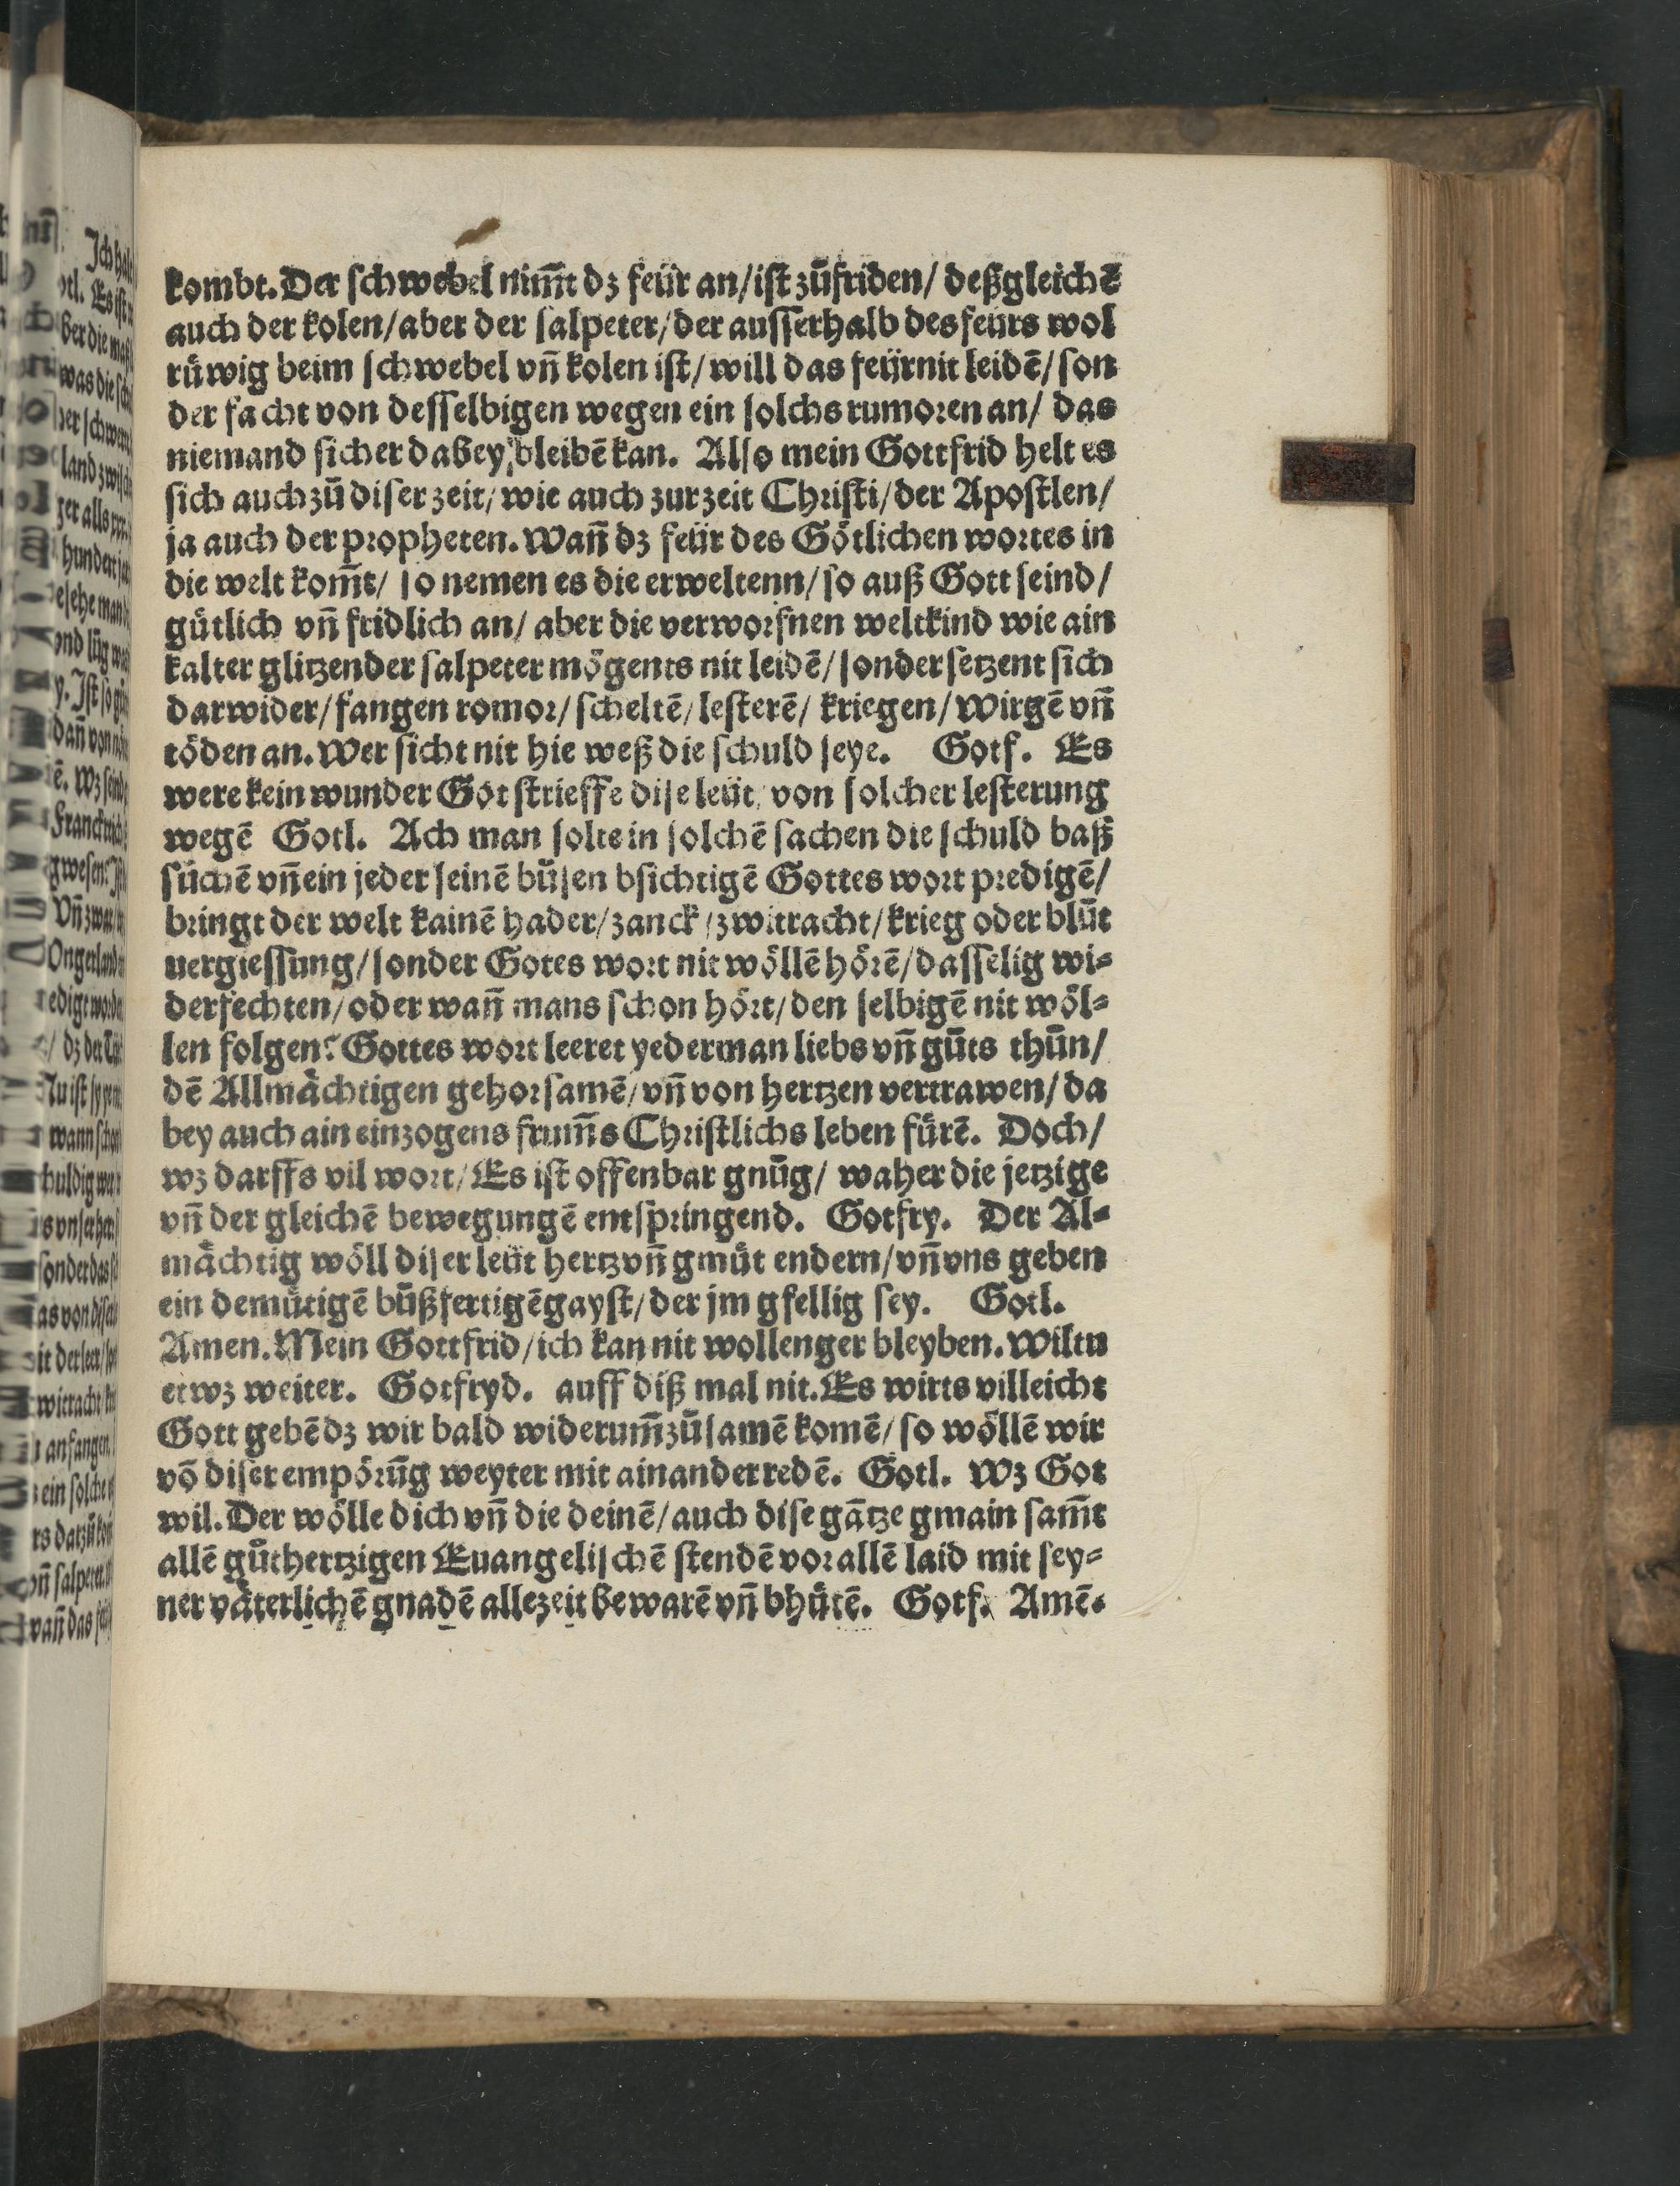 kombt. Der ſchwebel nim̄t dz feür an/iſt zůfriden/ deßgleichē
auch der kolen/aber der ſalpeter/der auſſerhalb des feürs wol
růwig beim ſchwebel vn̄ kolen iſt/will das feür nit leidē/ſon
der facht von deſſelbigen wegen ein ſolchs rumoren an/ das
niemand ſicher dabey bleibē kan. Alſo mein Gottfrid helt es
ſich auch zů diſer zeit/wie auch zur zeit Chriſti/der Apoſtlen/
ja auch der propheten. Wan̄ dz feür des Götlichen wortes in
die welt kom̄t/ ſo nemen es die erweltenn/ſo auß Gott ſeind/
gütlich vn̄ fridlich an/ aber die verworfnen weltkind wie ain
kalter glitzender ſalpeter mögents nit leidē/ſonder ſetzent ſich
darwider/fangen romor/ſcheltē/leſterē/ kriegen/Wirgē vn̄
töden an. Wer ſicht nit hie weß die ſchuld ſeye. Gotf. Es
were kein wunder Got ſtrieffe diſe leüt/von ſolcher leſterung
wegē Gotl. Ach man ſolte in ſolchē ſachen die ſchuld baß
ſůchē vn̄ ein jeder ſeinē bůſen bſichtigē Gottes wort predigē/
bringt der welt kainē hader/zanck/zwitracht/krieg oder blůt
uergieſſung/ſonder Gotes wort nit wöllē hörē/daſſelig wi⸗
derfechten/oder wan̄ mans ſchon hört/den ſelbigē nit wöl⸗
len folgen? Gottes wort leeret yederman liebs vn̄ gůts thůn/
dē Allmächtigen gehorſamē/vn̄ von hertzen vertrawen/da
bey auch ain einzogens frum̄s Chriſtlichs leben fürē. Doch/
wz darffs vil wort/Es iſt offenbar gnůg/ waher die jetzige
vn̄ der gleichē bewegungē entſpringend. Gotfry. Der Al⸗
mächtig wöll diſer leüt hertz vn̄ gmüt endern/vn̄ vns geben
ein demütigē bůßfertigē gayſt/der jm gfellig ſey. Gotl.
Amen. Mein Gottfrid/ich kan nit wol lenger bleyben. Wiltu
etwz weiter. Gotfryd. auff diß mal nit. Es wirts villeicht
Gott gebē dz wir bald widerum̄ zůſamē komē/ſo wöllē wir
vō diſer empörūg weyter mit ainander redē. Gotl. Wz Got
wil. Der wölle dich vn̄ die deinē/auch diſe gātze gmain ſam̄t
allē gůthertzigen Euangeliſchē ſtendē vor allē laid mit ſey⸗
ner väterlichē gnadē allezeit bewarē vn̄ bhütē. Gotf. Amē.